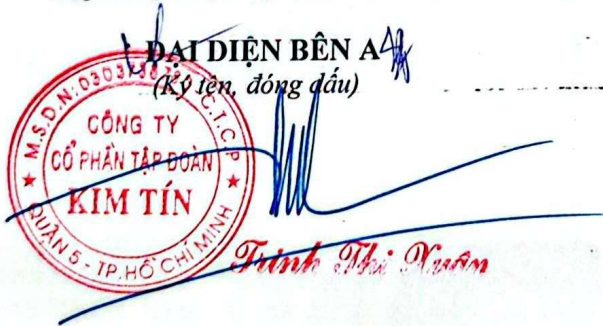 ĐẠI DIỆN BÊN A
(Ký tên, đóng dấu)
M.S.D.N: C.T.C.P
CÔNG TY
CỔ PHẦN TẬP ĐOÀN
KIM TÍN
QUẬN 5 - TP. HỒ CHÍ MINH
Trịnh Thị Xuân